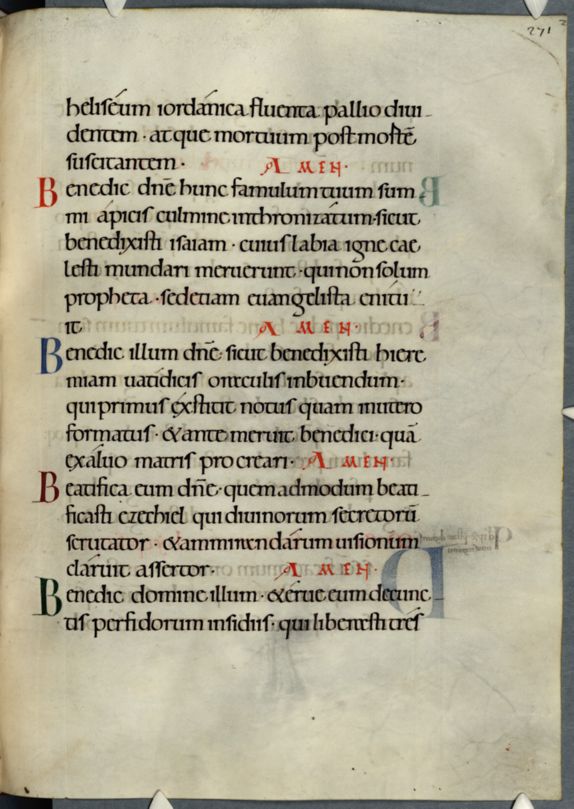 271
heliseum iordanica fluenta pallio diui
dentem · atque mortuum post mortē
suscitantem · AMEN ·
Benedic dn̄e hunc famulum tuum sum
mi apicis culmine inthronizatum · sicut
benedixisti isaiam · cuius labia igne cae
lesti mundari meruerunt · qui non solum
propheta · sed etiam euangelista enitu
it · AMEN ·
Benedic illum dn̄e · sicut benedixisti hiere
miam uatidicis oraculis inbuendum ·
qui primus exstitit notus quam inutero
formatus · & ante meruit benedici · quā
exaluo matris procreari · AMEN
Beatifica eum dn̄e · quemadmodum beati
ficasti ezechiel qui diuinorum secretorū
scrutator · & ammirandarum uisionum
claruit assertor · AMEN ·
Benedic domine illum · & erue eum decunc
tis perfidorum insidiis · qui liberasti tres